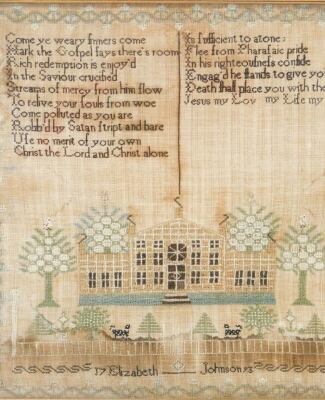 Come ye weary ſinners come
Hark the Goſpel ſays there's room
Rich redemption is enjoy'd
In the Saviour crucified
Streams of mercy from him flow
To relive your ſouls from woe
Come polluted as you are
Robb'd by Satan ſtript and bare
Uſe no merit of your own
Christ the Lord and Christ alone
Is ſufficient to atone;
Flee from Pharaſaic pride
In his righteouſneſs confide
Engag'd he ſtands to give you
Death ſhall place you with the
Jesus my Lov my Life my
17 Elizabeth Johnson 93